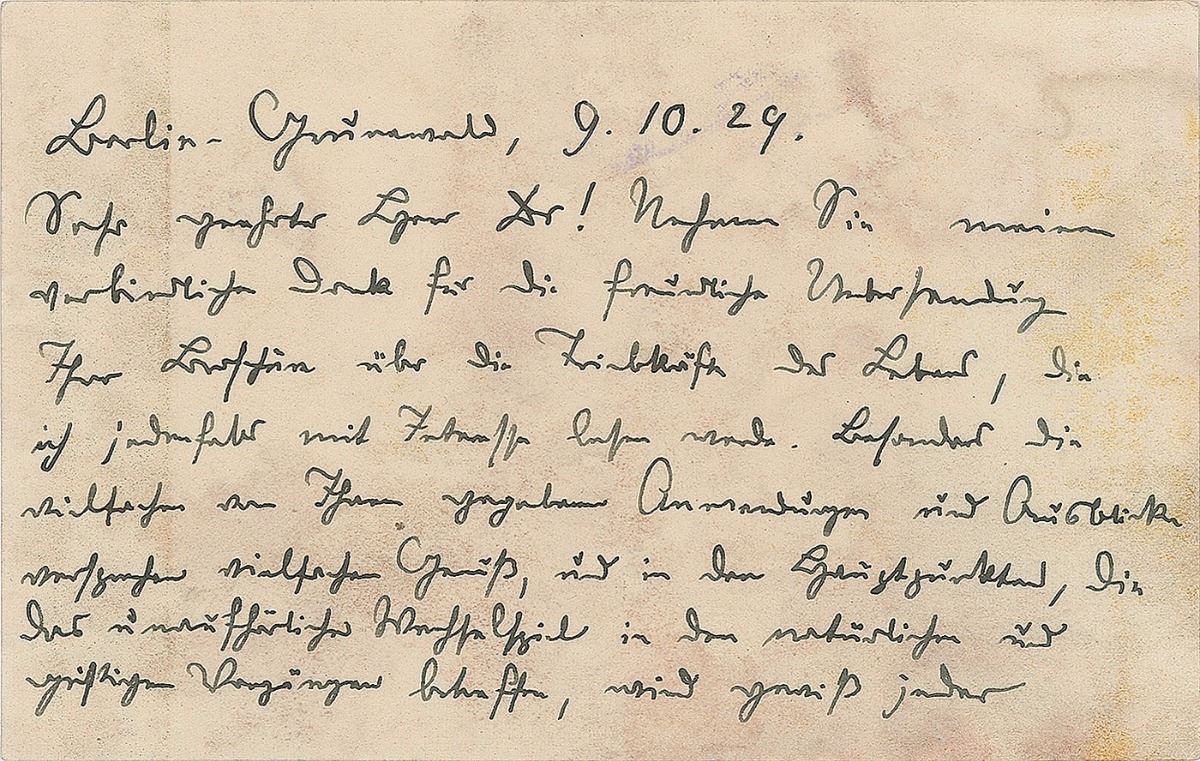 Berlin-Grunewald, 9.10.29.
Sehr geehrter Herr Dr! Nehmen Sie meinen
verbindlichen Dank für die freundliche Übersendung
Ihrer Broschüre über die Triebkräfte des Lebens, die
ich jedenfalls mit Interesse lesen werde. Besonders die
vielfachen von Ihnen gegebenen Anwendungen und Ausblicke
versprechen vielfachen Genuß, und in den Hauptpunkten, die
das unaufhörliche Wechselspiel in den natürlichen und
geistigen Vorgängen betreffen, wird gewiß jeder